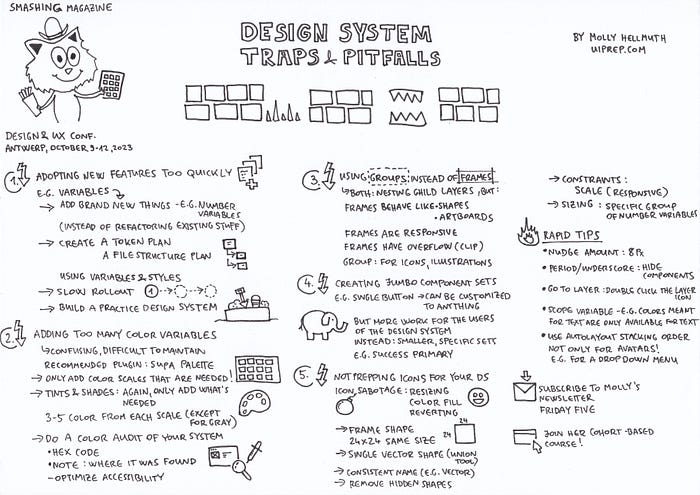 SMASHING MAGAZINE
DESIGN SYSTEM
TRAPS & PITFALLS
BY MOLLY HELLMUTH
UIPREP.COM
DESIGN & UX CONF.
ANTWERP, OCTOBER 9-12, 2023
1. ADOPTING NEW FEATURES TOO QUICKLY
E.G. VARIABLES
→ ADD BRAND NEW THINGS - E.G. NUMBER
VARIABLES
(INSTEAD OF REFACTORING EXISTING STUFF)
→ CREATE A TOKEN PLAN
A FILE STRUCTURE PLAN
USING VARIABLES & STYLES
→ SLOW ROLLOUT 1
→ BUILD A PRACTICE DESIGN SYSTEM
2. ADDING TOO MANY COLOR VARIABLES
↳ CONFUSING, DIFFICULT TO MAINTAIN
RECOMMENDED PLUGIN: SUPA PALETTE
→ ONLY ADD COLOR SCALES THAT ARE NEEDED!
→ TINTS & SHADES: AGAIN, ONLY ADD WHAT'S
NEEDED
3-5 COLOR FROM EACH SCALE (EXCEPT
FOR GRAY)
→ DO A COLOR AUDIT OF YOUR SYSTEM
• HEX CODE
• NOTE: WHERE IT WAS FOUND
- OPTIMIZE ACCESSIBILITY
3. USING GROUPS INSTEAD OF FRAMES
↳ BOTH: NESTING CHILD LAYERS, BUT:
FRAMES BEHAVE LIKE • SHAPES
• ARTBOARDS
FRAMES ARE RESPONSIVE
FRAMES HAVE OVERFLOW (CLIP)
GROUP: FOR ICONS, ILLUSTRATIONS
4. CREATING JUMBO COMPONENT SETS
E.G. SINGLE BUTTON → CAN BE CUSTOMIZED
TO ANYTHING
BUT MORE WORK FOR THE USERS
OF THE DESIGN SYSTEM
INSTEAD: SMALLER, SPECIFIC SETS
E.G. SUCCESS PRIMARY
5. NOT PREPPING ICONS FOR YOUR DS
ICON SABOTAGE: RESIZING
COLOR FILL
REVERTING
→ FRAME SHAPE
24x24 SAME SIZE
24
24
→ SINGLE VECTOR SHAPE (UNION
TOOL)
→ CONSISTENT NAME (E.G. VECTOR)
→ REMOVE HIDDEN SHAPES
→ CONSTRAINTS:
SCALE (RESPONSIVE)
→ SIZING: SPECIFIC GROUP
OF NUMBER VARIABLES
RAPID TIPS
• NUDGE AMOUNT: 8PX
• PERIOD/UNDERSCORE: HIDE
COMPONENTS
• GO TO LAYER: DOUBLE CLICK THE LAYER
ICON
• SCOPE VARIABLE - E.G. COLORS MEANT
FOR TEXT ARE ONLY AVAILABLE FOR TEXT
• USE AUTOLAYOUT STACKING ORDER
NOT ONLY FOR AVATARS!
E.G. FOR A DROP DOWN MENU
SUBSCRIBE TO MOLLY'S
NEWSLETTER
FRIDAY FIVE
JOIN HER COHORT-BASED
COURSE!